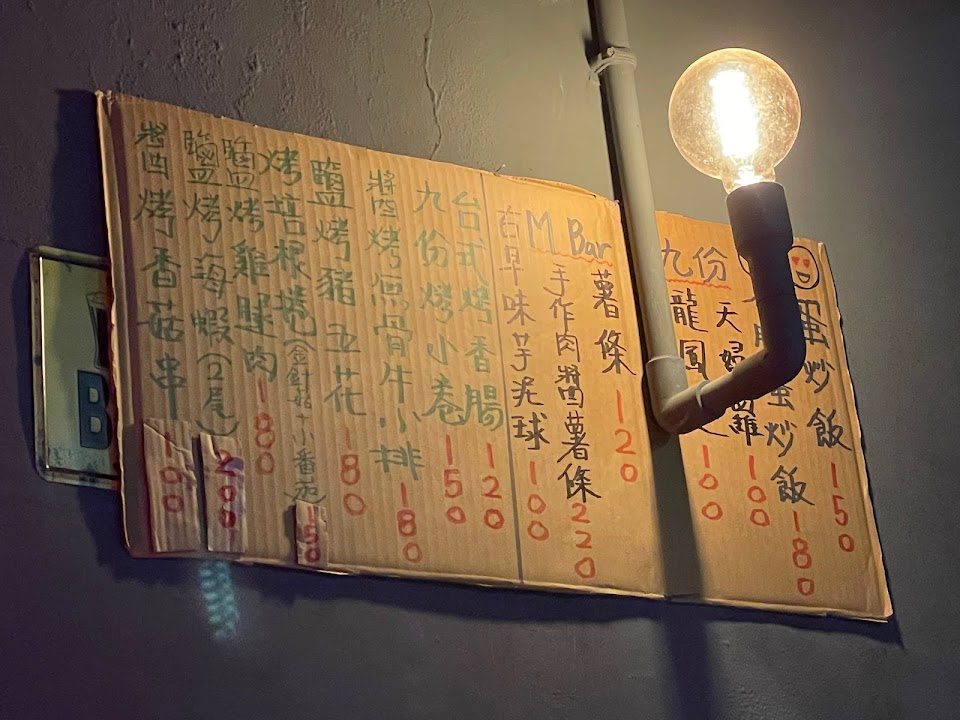 蛋炒飯 150
蛋炒飯 180
九份
天婦羅 100
龍鳳 100
M Bar
薯條 120
手作肉醬薯條 220
古早味芋泥球 100
台式烤香腸 120
九份烤小卷 150
醬烤無骨牛小排 180
鹽烤豬五花 180
烤培根捲(金針菇+小番茄) 150
鹽烤雞腿肉 180
鹽烤海蝦(2尾) 200
醬烤香菇串 100
B